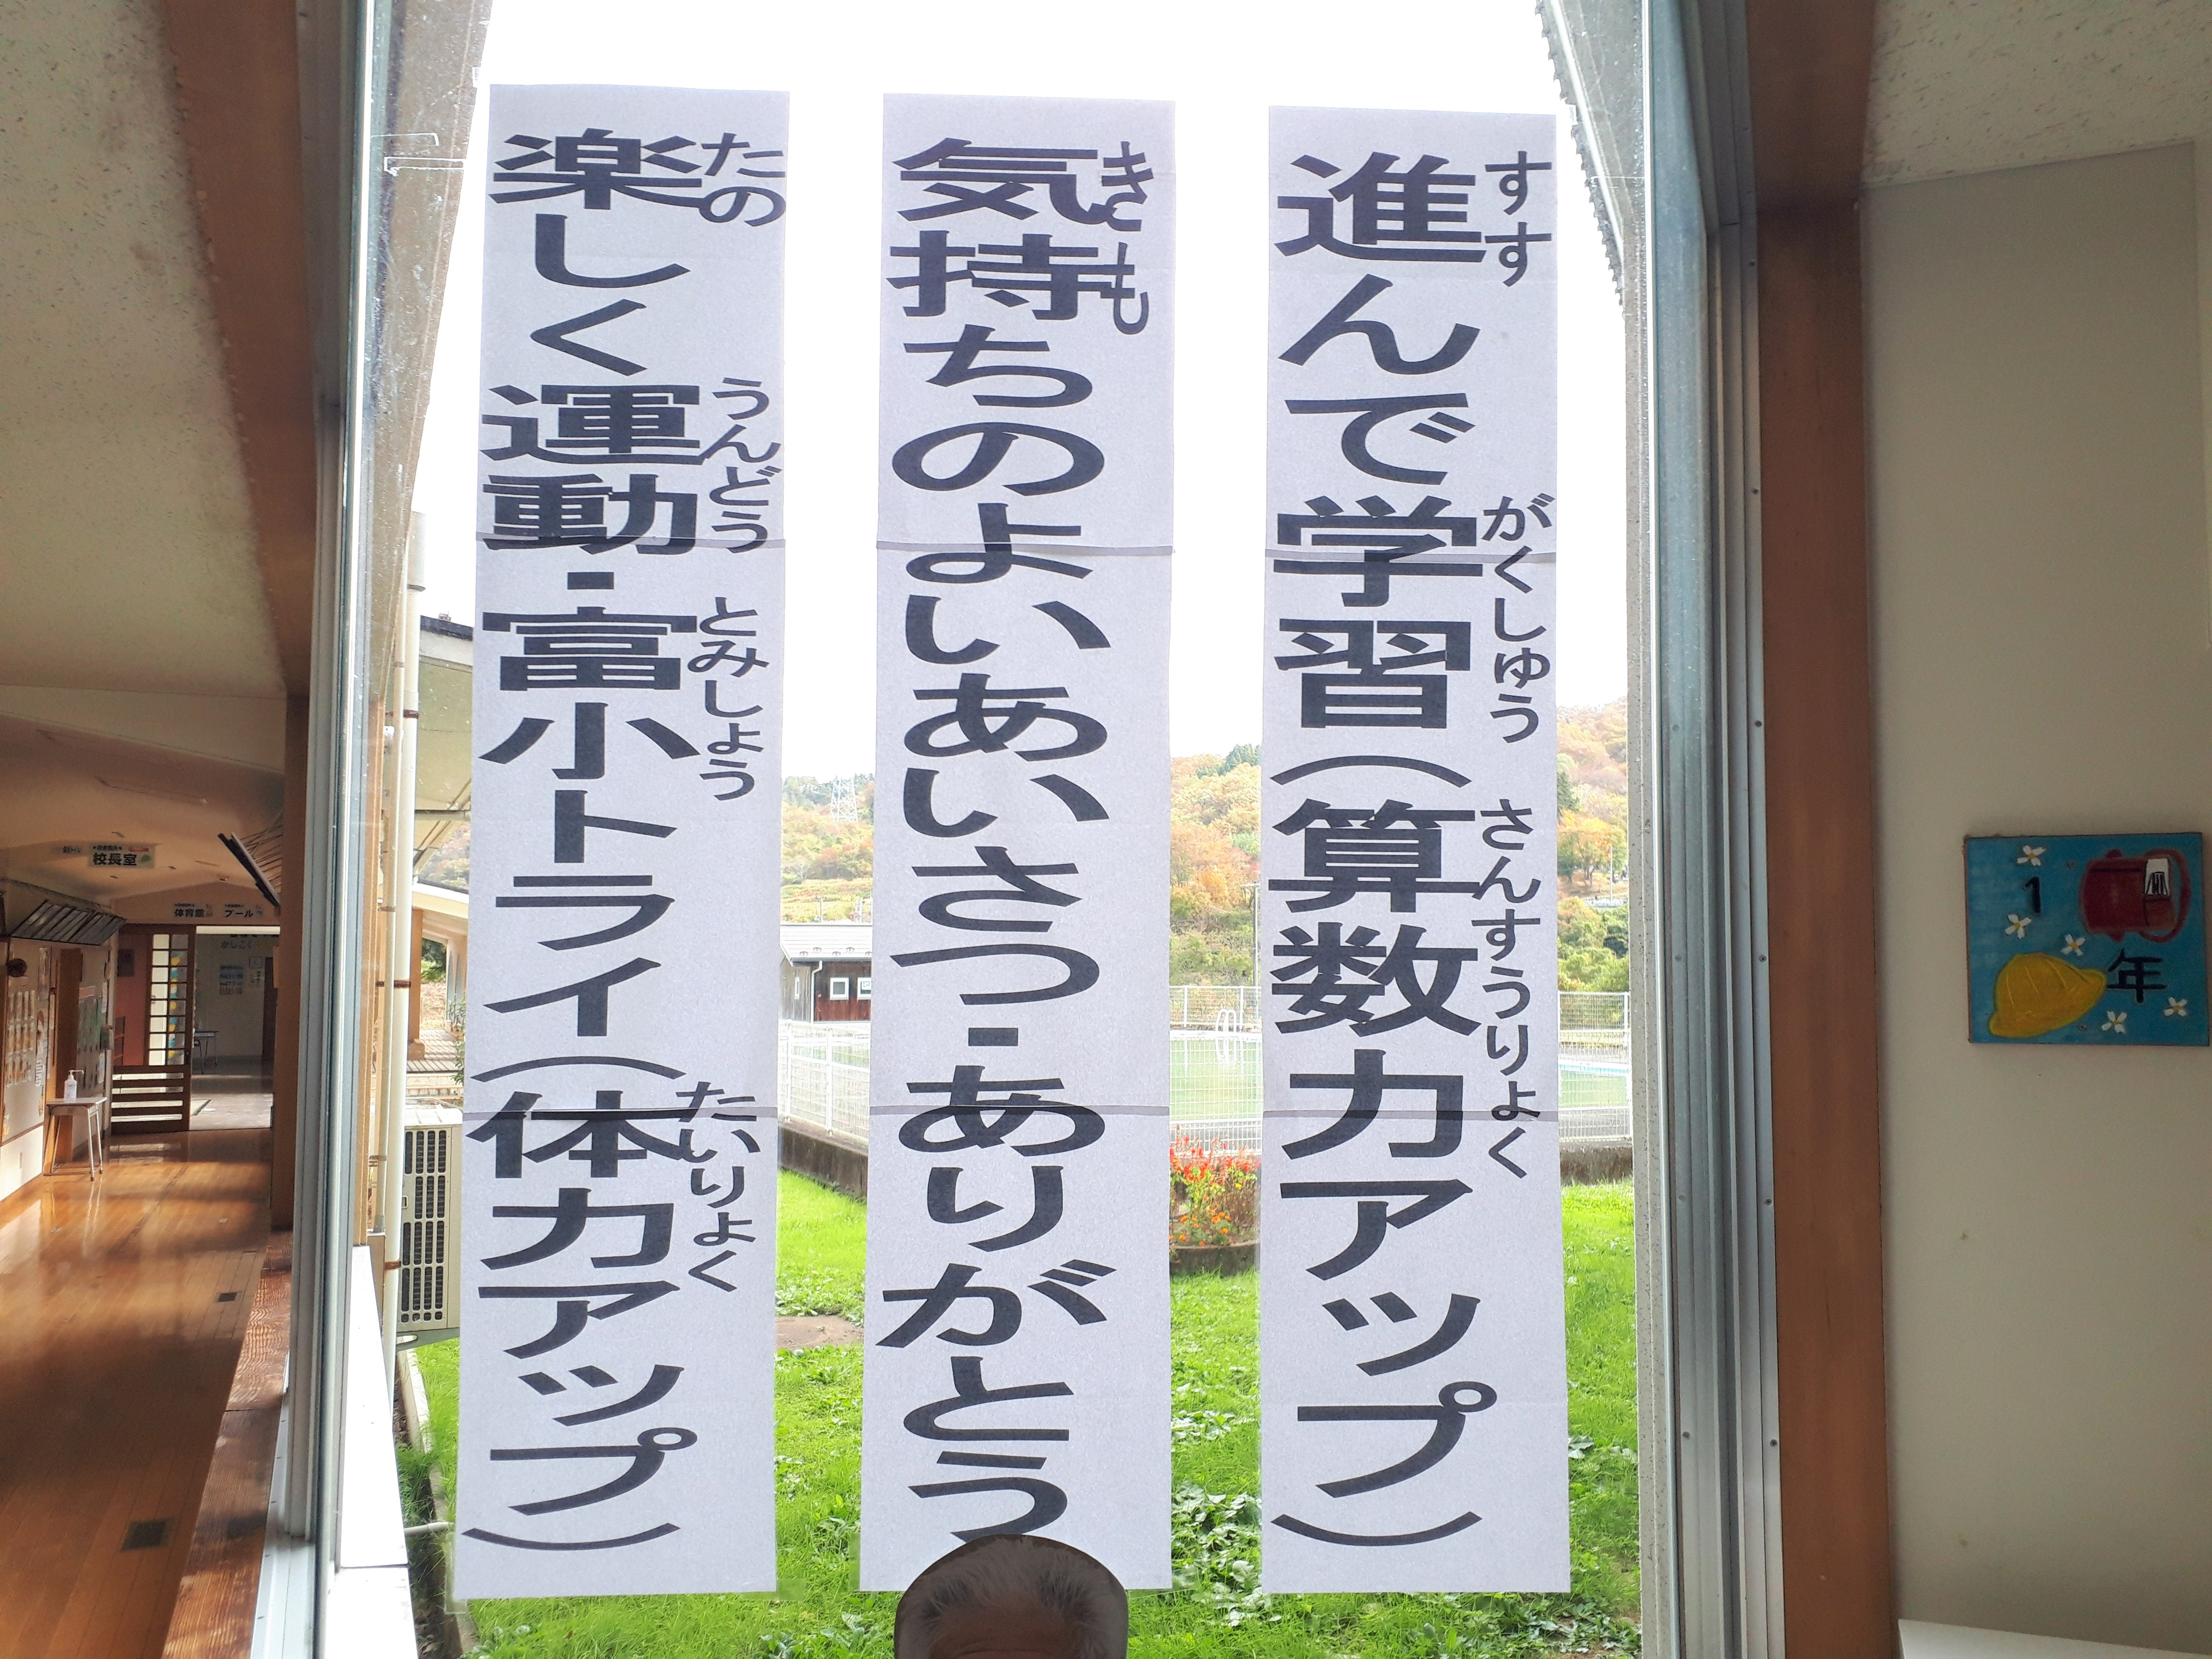 進んで学習(算数力アップ)
すす
がくしゅう
さんすうりょく
気持ちのよいあいさつ・ありがとう
きも
楽しく運動・富小トライ(体力アップ)
たの
うんどう
とみしょう
たいりょく
校長室
体育館
プール
かしこく
1
年